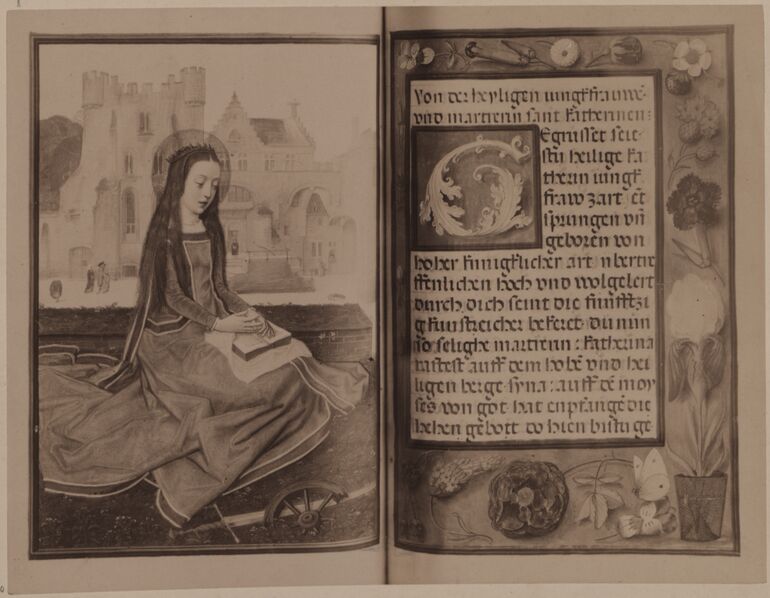 Von der heyligen iungkfrauwe
vnd martrerin sant Katherinen:
Egrusset seit
stu heilige Ka
therin iungk
fraw zart et
sprungen vn
geboren von
hoher kunigklicher art
ffenlichen hoch vnd wolgelert
durch dich seint die funfftzi
g kunstreicher bekeret du nun
so selighe martrerin : Katherina
rastest auff dem hohe vnd hei
ligen berge syna : auff de moy
ses von got hat enpfange die
hehen gebott do hien bistu ge